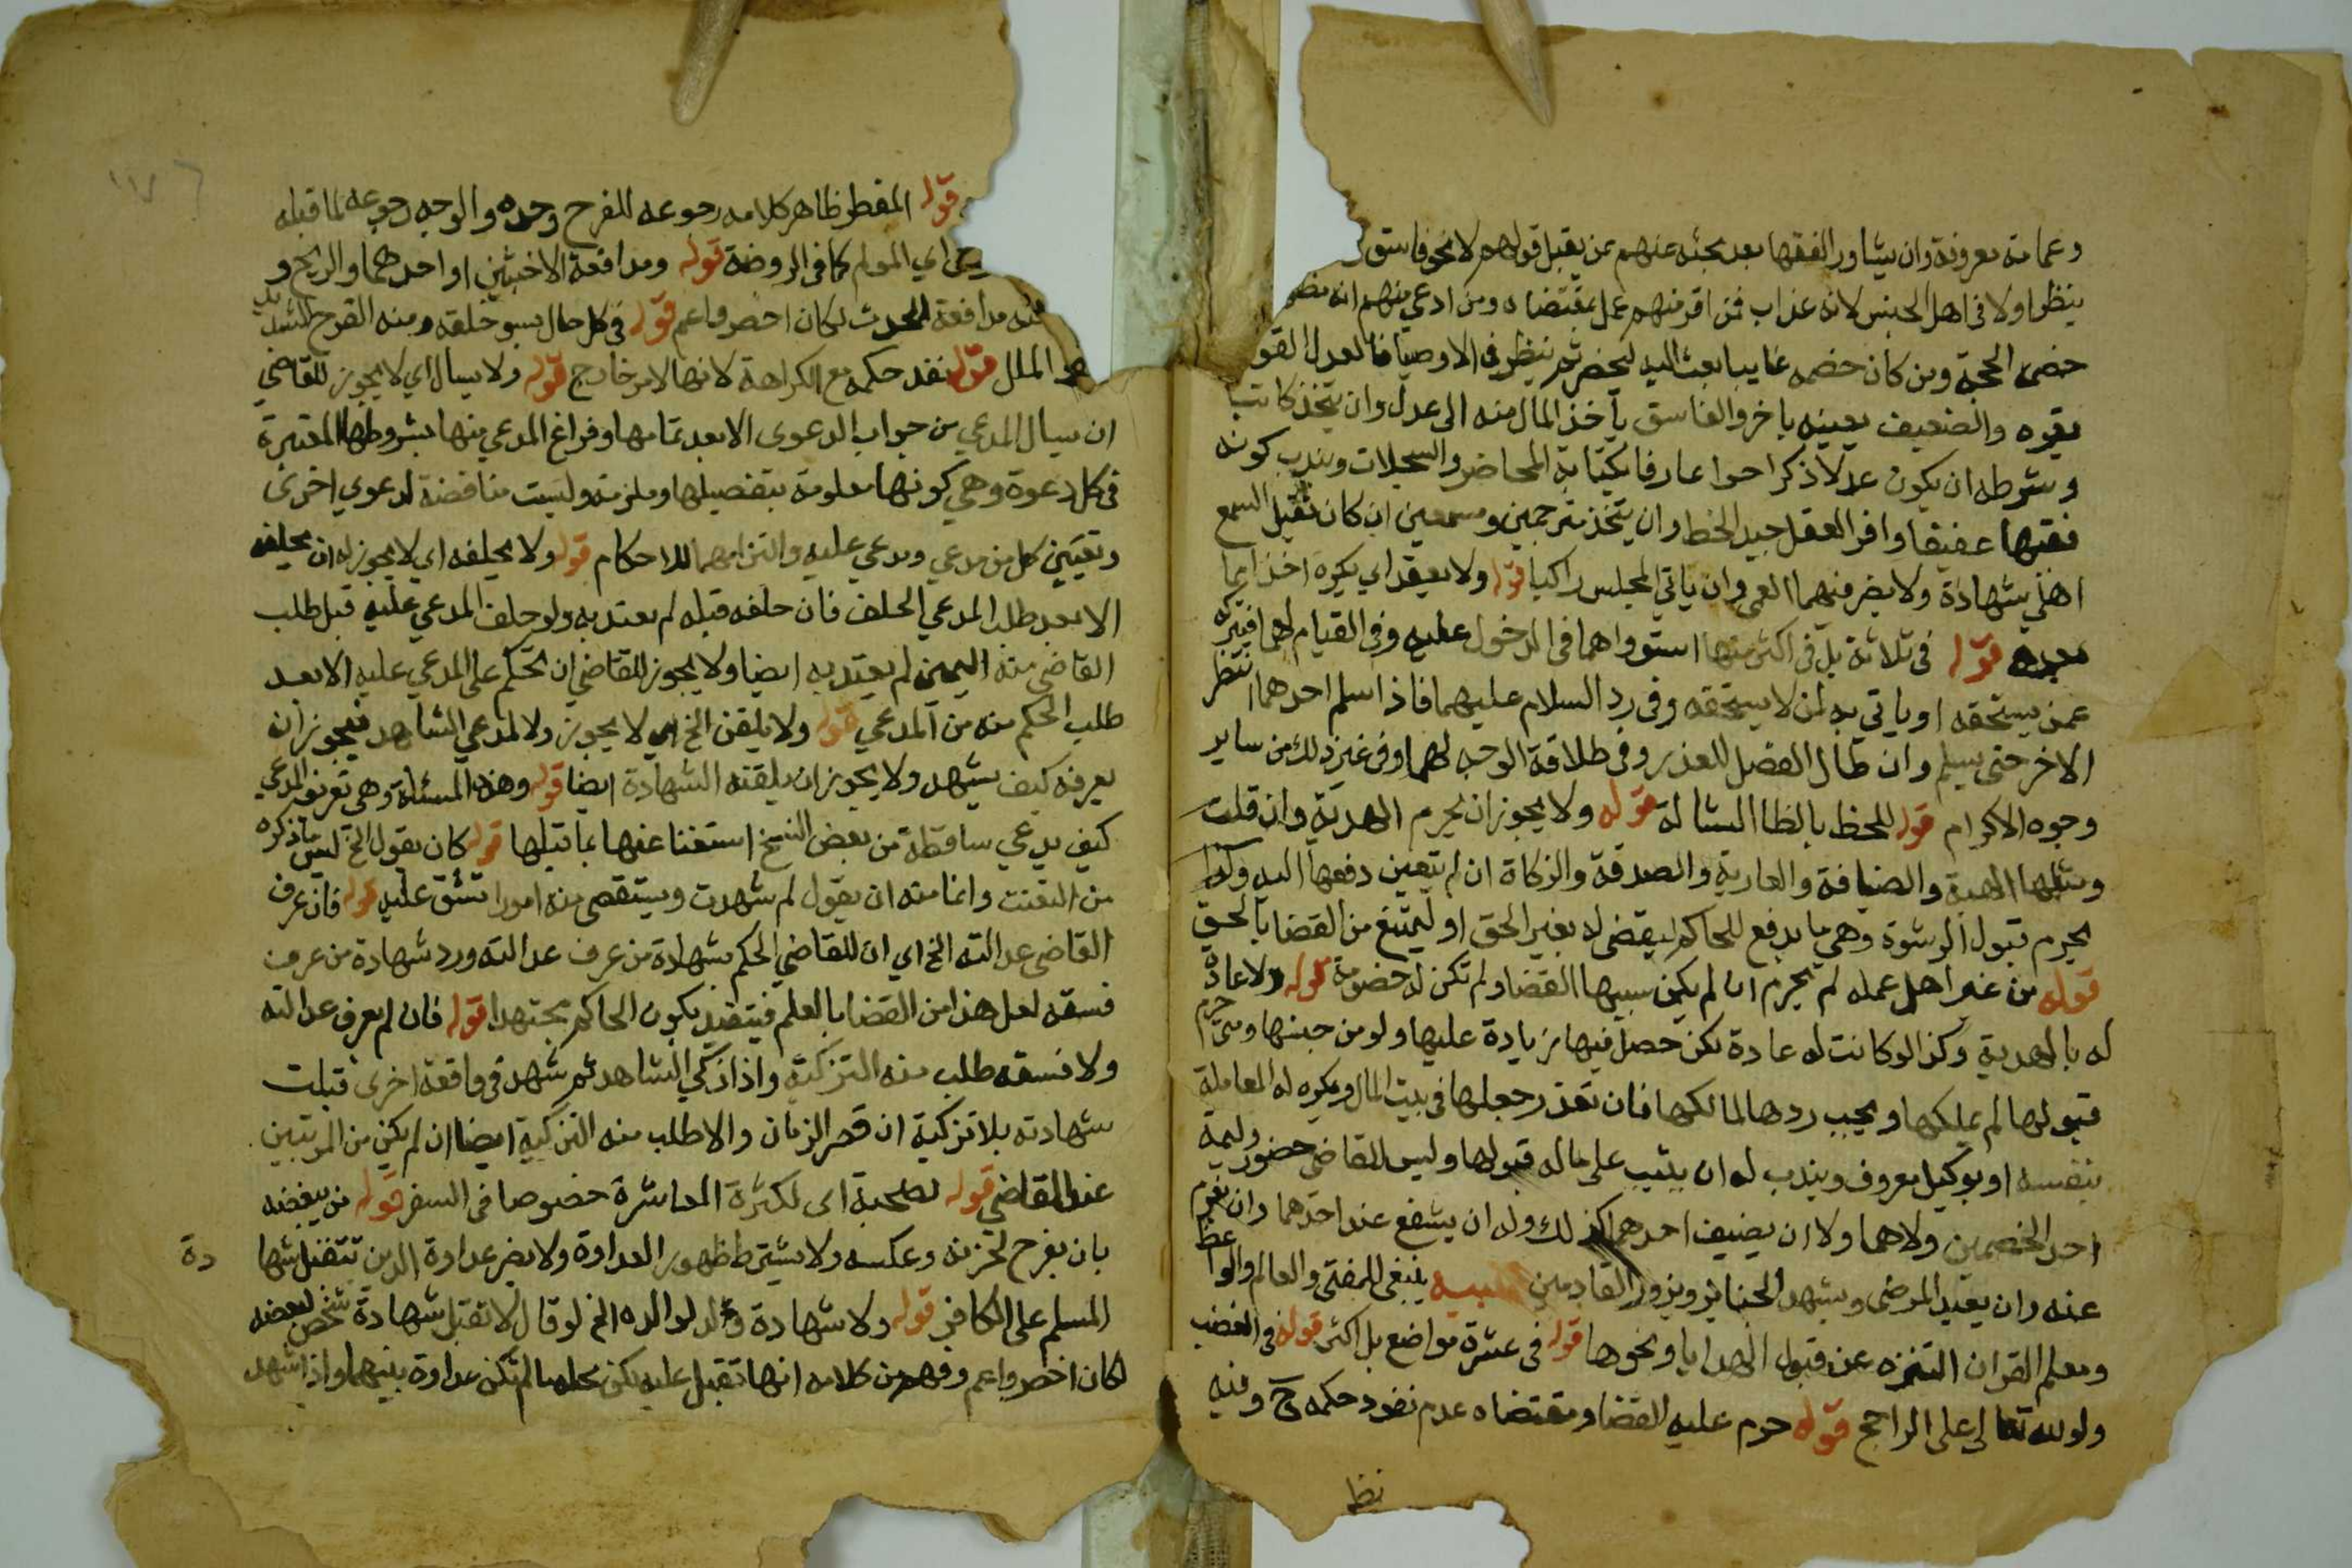 وعمامة معروفة وان يشاور الفقها بعد بحثه عنهم عن يقبل قولهم لا نحو فاسق
ينظر اولا في اهل الحبس لانه عذاب فمن اقر منهم عمل بمقتضاه ومن ادعي منهم انه مظلو
خصمه الحجة ومن كان خصمه غايبا بعث اليه ليحضر ثم ينظر في الاوصيا فالعدل القوي
يقره والضعيف يعينه باخر والفاسق يأخذ المال منه الى عدل وان يتخذ كاتبا
وشرطه ان يكون عدلا ذكرا حرا عارفا بكتابة المحاضر والسجلات ويندب كونه
فقيها عفيفا وافر العقل جيد الخط وان يتخذ مترجمين ومسمعين ان كان ثقيل السمع
اهلي شهادة ولا يضر فيهما العمى وان ياتي المجلس راكبا قوله ولا يعقد اي يكره اخذ اعما
بعده قوله في ثلاثة بل في اكثر منها استوواهما في الدخول عليه وفي القيام لهما فيتركه
عمن يستحقه او ياتي به لمن لا يستحقه وفي رد السلام عليهما فاذا سلم احدهما انتظر
الاخر حتى يسلم وان طال الفصل للعذر وفي طلاقة الوجه لهما وفي غير ذلك من ساير
وجوه الاكرام قوله للحظ بالظا المشالة قوله ولا يجوز ان يحرم الهدية وان قلت
ومثلها الهبة والضيافة والعارية والصدقة والزكاة ان لم يتعين دفعها اليه وكذا
يحرم قبول الرشوة وهي ما يدفع للحاكم ليقضي له بغير الحق او ليمتنع من القضا بالحق
قوله من غير اهل عمله لم يحرم ان لم يكن سببها القضا ولم تكن له خصومة قوله ولا عادة
له بالهدية وكذا لو كانت له عادة لكن حصل فيها زيادة عليها ولو من جنسها ومتى حرم
قبولها لم يملكها ويجب ردها لمالكها فان تعذر جعلها في بيت المال ويكره له المعاملة
بنفسه او بوكيل معروف ويندب له ان يثيب على ما له قبولها وليس للقاضي حضور وليمة
احد الخصمين ولا هما ولا ان يضيف احدهما كذلك وله ان يشفع عند احدهما وان يغرم
عنه وان يعيد المرضى ويشهد الجنايز ويزور القادمين تنبيه ينبغي للمفتي والعالم والواعظ
ومعلم القران التنزه عن قبول الهدايا ونحوها قوله في عشرة مواضع بل اكثر قوله في الغضب
ولو لله تعالى على الراجح قوله حرم عليه القضا ومقتضاه عدم نفوذ حكمه ح وفيه
نظر
قوله المفطر ظاهر كلامه رجوعه للفرح وحده والوجه رجوعه لما قبله
اي المولم كما في الروضة قوله ومدافعة الاخبثين او احدهما والريح و
منه مدافعة الحدث لكان اخصر واعم قوله في كل حال يسو خلقه ومنه الفرح الشديد
الملل قوله نفذ حكمه مع الكراهة لانها لامر خارج قوله ولا يسال اي لا يجوز للقاضي
ان يسال المدعي من جواب الدعوى الا بعد تمامها وفراغ المدعي منها بشروطها المعتبرة
في كل دعوة وهي كونها معلومة بتفصيلها وملزمة وليست مناقضة لدعوي اخرى
وتعيين كل من مدعي ومدعي عليه والتزامهما للاحكام قوله ولا يحلفه اي لا يجوز له ان يحلفه
الا بعد طلب المدعي الحلف فان حلفه قبله لم يعتد به ولو حلف المدعي عليه قبل طلب
القاضي منه اليمين لم يعتد به ايضا ولا يجوز للقاضي ان يحكم على المدعي عليه الا بعد
طلب الحكم منه من المدعي قوله ولا يلقن الخ اي لا يجوز ولا لمدعي الشاهد فيجوز ان
يعرفه كيف يشهد ولا يجوز ان يلقنه الشهادة ايضا قوله وهذه المسئلة وهي تعريف المدعي
كيف يدعي ساقطة من بعض النسخ استغنا عنها بما قبلها قوله كان يقول الخ ليس ما ذكره
من التعنت وانما منه ان يقول لم شهدت ويستقصي منه امورا تشق عليه قوله فان عرف
القاضي عدالته الخ اي ان للقاضي الحكم بشهادة من عرف عدالته ورد شهادة من عرف
فسقه لعل هذا من القضا بالعلم فيتقيد بكون الحاكم مجتهدا قوله فان لم يعرف عدالته
ولا فسقه طلب منه التزكية واذا زكي الشاهد ثم شهد في واقعة اخرى قبلت
شهادته بلا تزكية ان قصر الزمان والا طلب منه التزكية ايضا ان لم يكن من المرتبين
عند القاضي قوله لصحبة اي لكثرة المعاشرة خصوصا في السفر قوله من يبغضه
بان يفرح لحزنه وعكسه ولا يشترط ظهور العداوة ولا يضر عداوة الدين تتقبل شها دة
المسلم على الكافر قوله ولا شهادة ولد لوالده الخ لو قال لا تقبل شهادة شخص لبعضه
لكان اخصر واعم وفهم من كلامه انها تقبل عليه لكن محله ما لم تكن عداوة بينهما واذا شهد